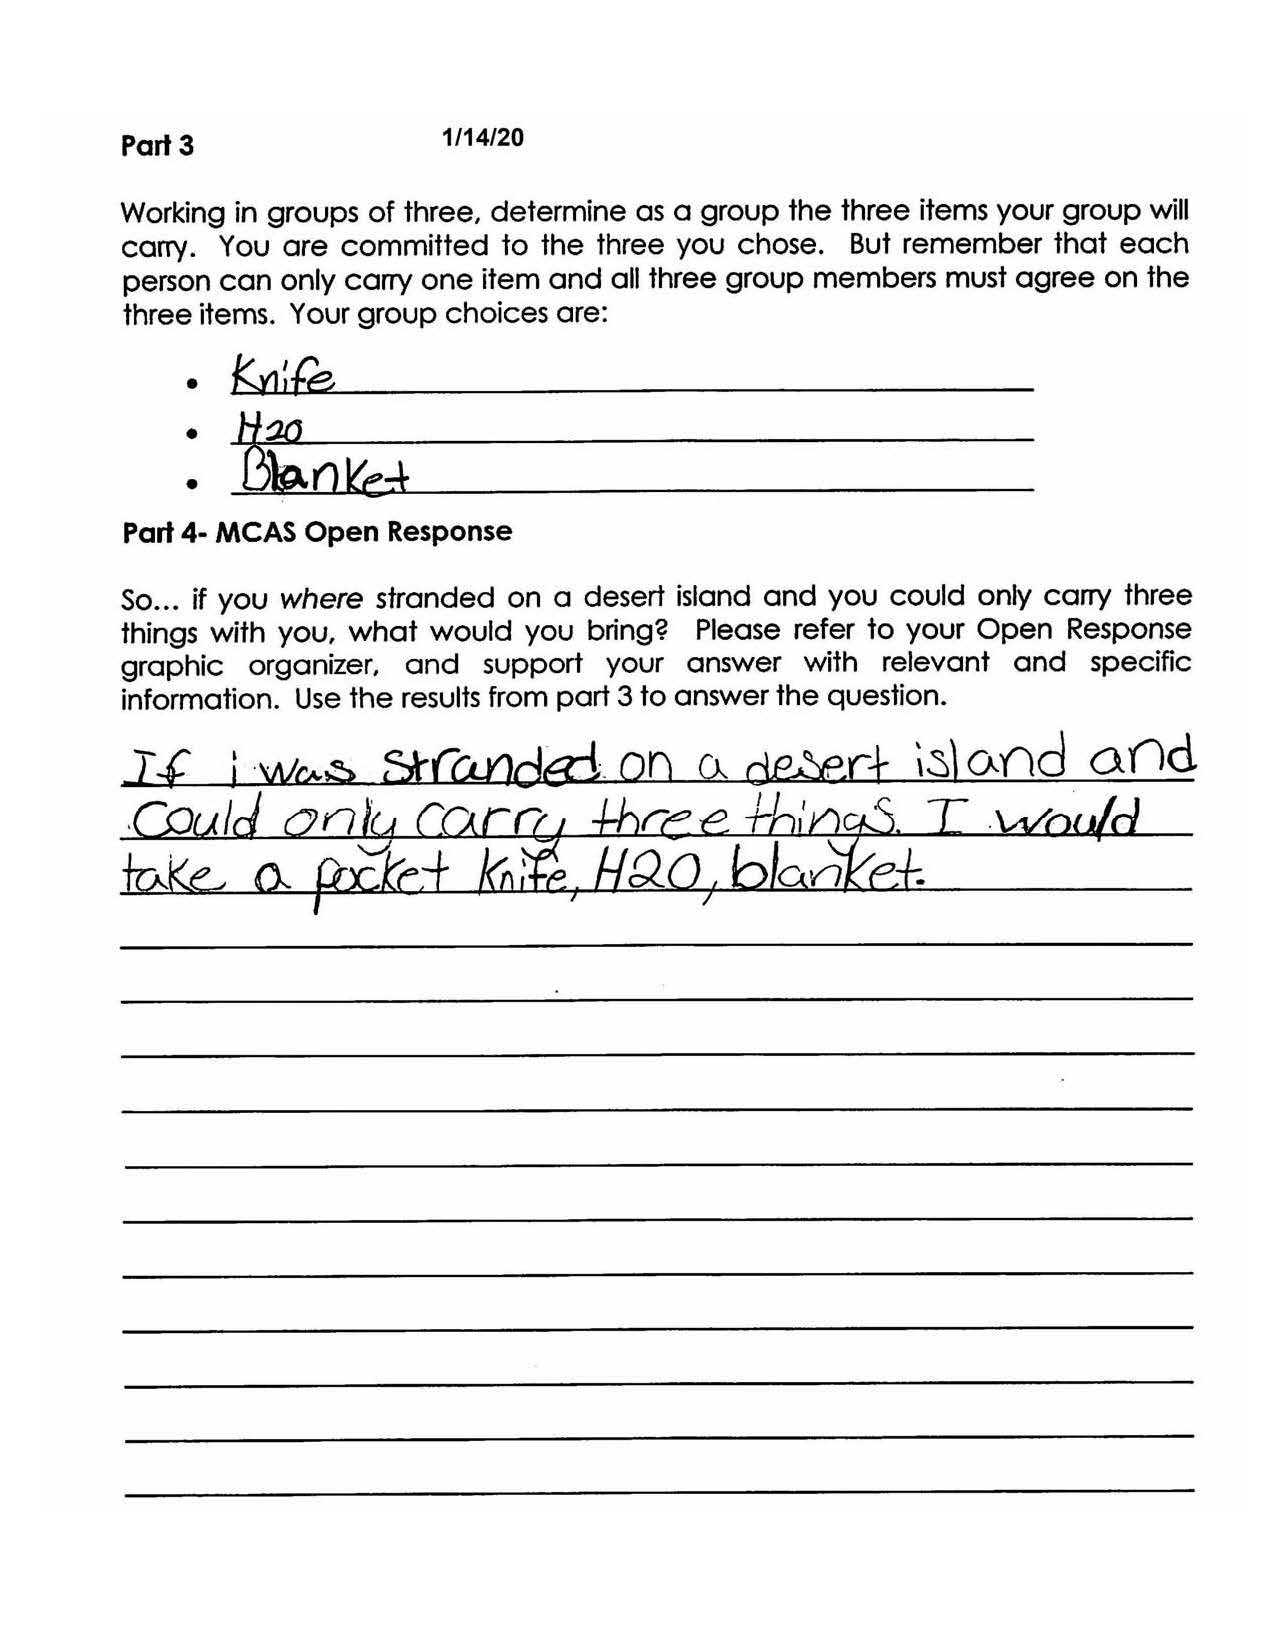 Part 3
1/14/20
Working in groups of three, determine as a group the three items your group will
carry. You are committed to the three you chose. But remember that each
person can only carry one item and all three group members must agree on the
three items. Your group choices are:
• Knife
• H20
• Blanket
Part 4- MCAS Open Response
So... if you where stranded on a desert island and you could only carry three
things with you, what would you bring? Please refer to your Open Response
graphic organizer, and support your answer with relevant and specific
information. Use the results from part 3 to answer the question.
If i was stranded on a desert island and
could only carry three things. I would
take a pocket knife, H20, blanket.